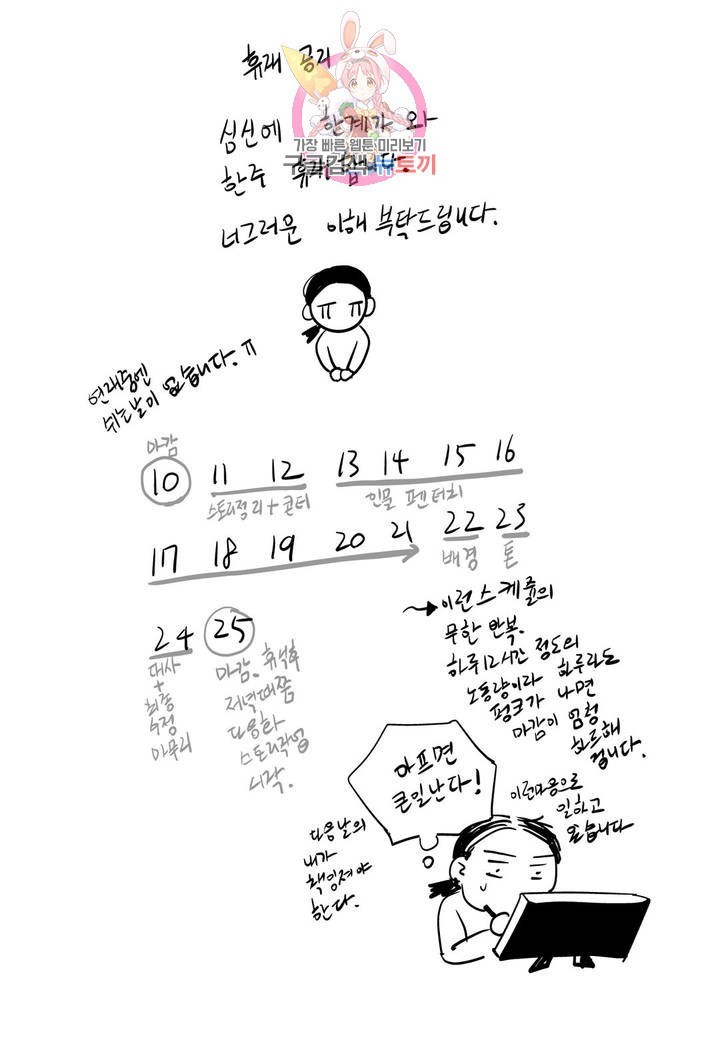 휴재 공지
심신에 한계가 와
가장 빠른 웹툰 미리보기
구글검색 뉴토끼
한주 휴재합니다.
너그러운 이해 부탁드립니다.
ㅠ ㅠ
연재중엔
쉬는날이 없습니다. ㅠ
마감
10 11 12 13 14 15 16
스토리정리+콘티 인물 펜터치
17 18 19 20 21 22 23
배경 톤
24 25
대사
+
최종
수정
마무리
마감. 휴식후
저녁때쯤
다음화
스토리작업
시작.
이런스케쥴의
무한 반복.
하루12시간 정도의
노동량이라 하루라도
펑크가 나면
마감이 엄청
하드해
집니다.
아프면
큰일난다!
이런마음으로
일하고
있습니다
다음날의
내가
책임져야
한다.